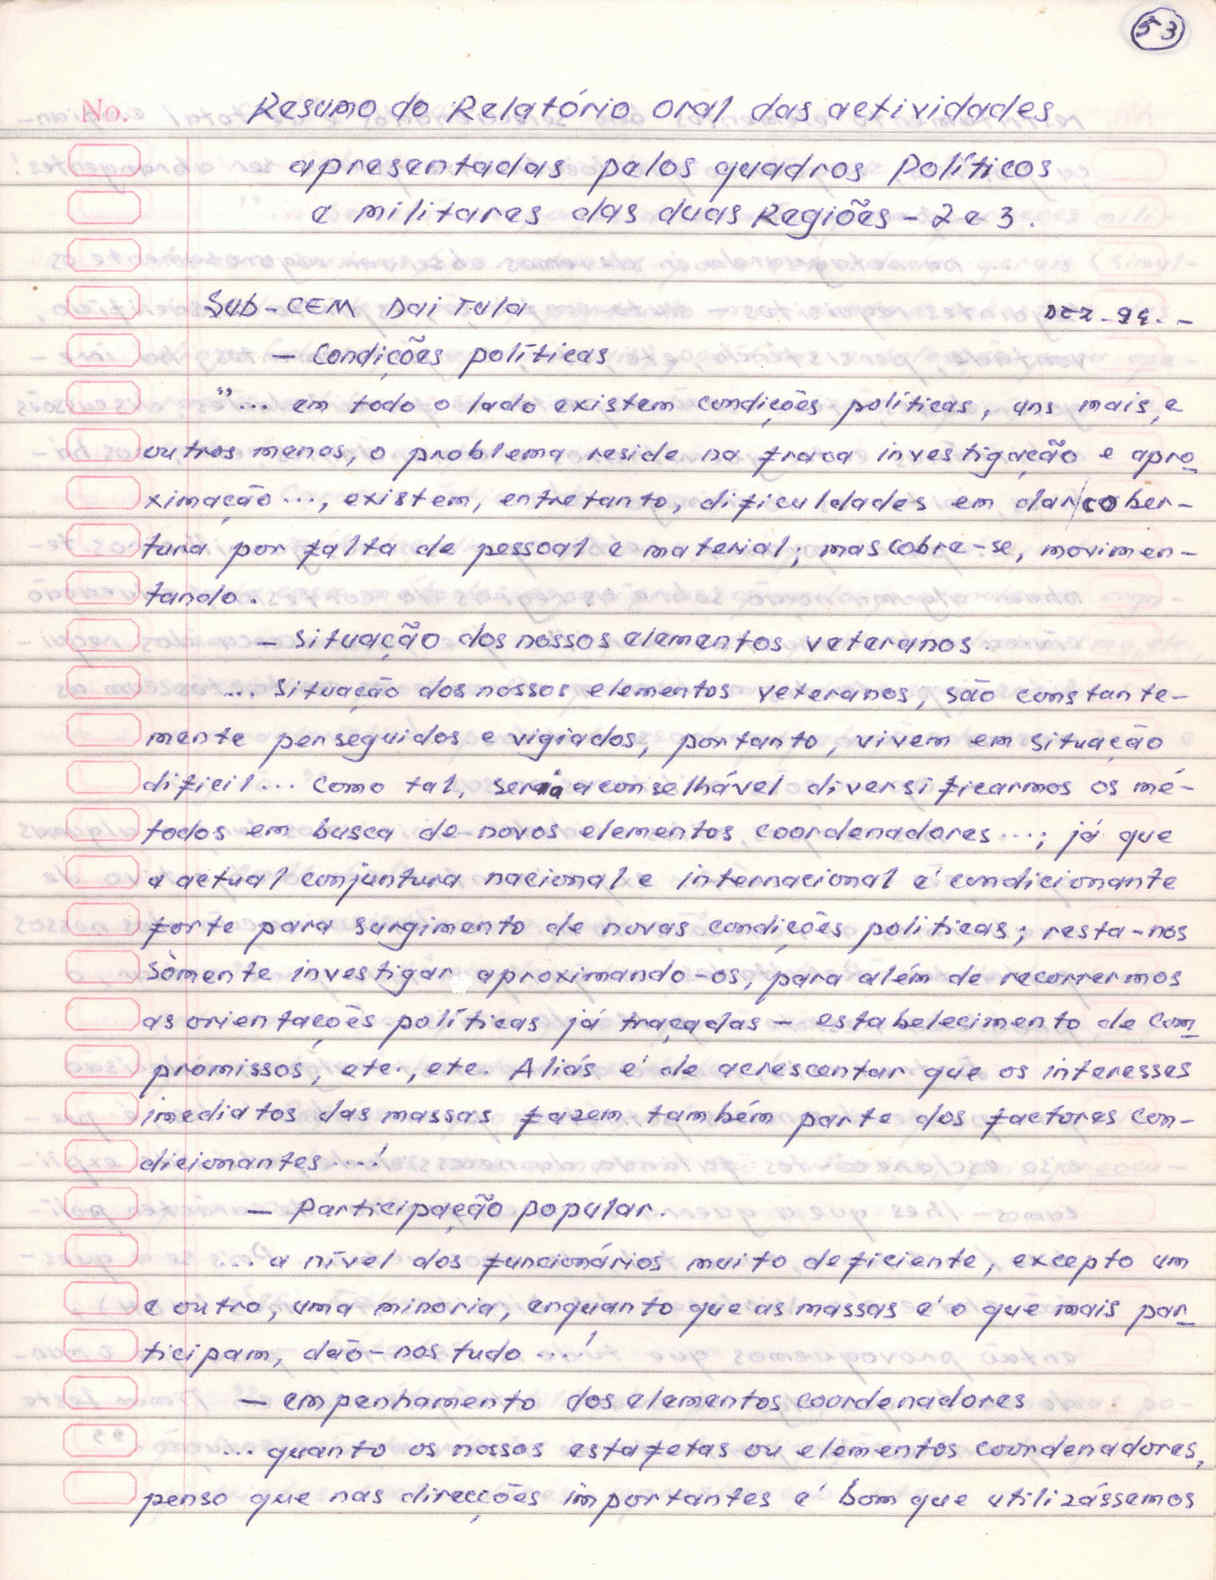 53
No.
Resumo do Relatório oral das actividades
apresentadas pelos quadros Políticos
e militares das duas Regiões - 2 e 3.
Sub-CEM Dai Tula DEZ-94.-
- Condições políticas
"... em todo o lado existem condições políticas, uns mais, e
outros menos, o problema reside na fraca investigação e apro-
ximação..., existem, entretanto, dificuldades em dar cober-
tura por falta de pessoal e material; mas cobre-se, movimen-
tando.
- Situação dos nossos elementos veteranos.
... Situação dos nossos elementos veteranos, são constante-
mente perseguidos e vigiados, portanto, vivem em situação
dificil... Como tal, seria aconselhável diversificarmos os mé-
todos em busca de novos elementos, coordenadores...; já que
a actual conjuntura nacional e internacional é condicionante
forte para surgimento de novas condições politicas; resta-nos
sòmente investigar aproximando-os, para além de recorrermos
as orientações políticas já traçadas - estabelecimento de com-
promissos, etc., etc. Aliás é de acrescentar que os interesses
imediatos das massas fazem também parte dos factores con-
dicionantes...!
- Participação popular.
... a nível dos funcionários muito deficiente, excepto um
e outro, uma minoria, enquanto que as massas é o que mais par-
ticipam, dão-nos tudo...!
- empenhamento dos elementos coordenadores
... quanto os nossos estafetas ou elementos coordenadores,
penso que nas direcções importantes é bom que utilizássemos